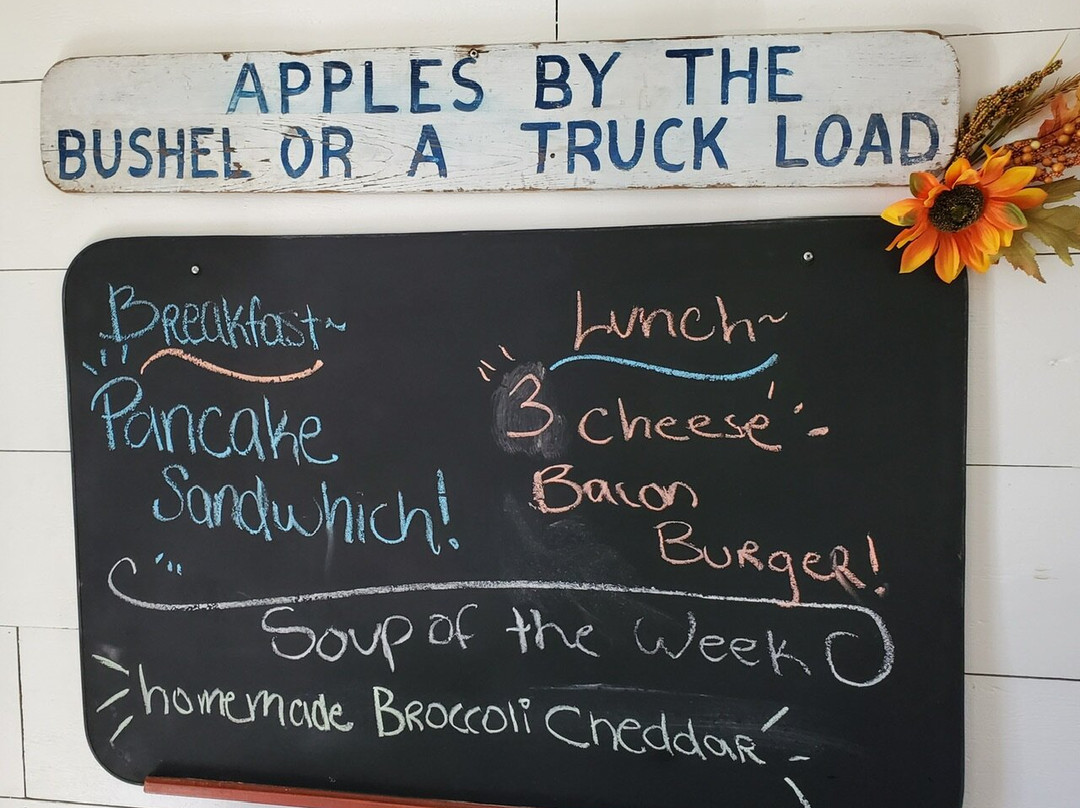 APPLES BY THE
BUSHEL OR A TRUCK LOAD
Breakfast~
Pancake
Sandwhich!
Lunch~
3 cheese
Bacon
Burger!
Soup of the Week
homemade Broccoli Cheddar